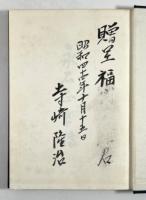 贈呈 福
君
昭和四十年十月十五日
寺崎隆治